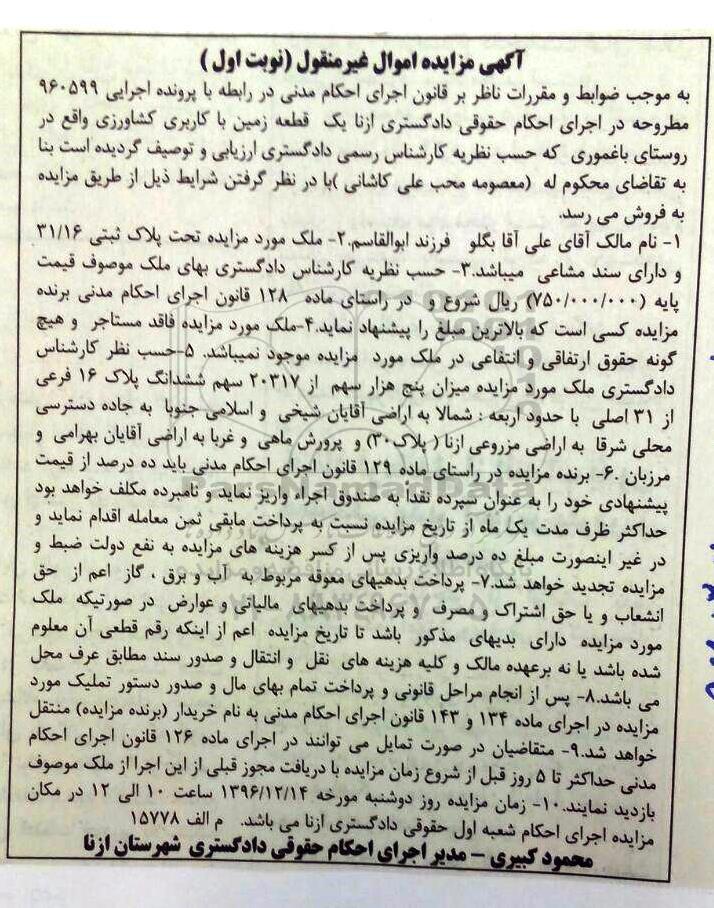 آگهی مزایده اموال غیرمنقول (نوبت اول)
به موجب ضوابط و مقررات ناظر بر قانون اجرای احکام مدنی در رابطه با پرونده اجرایی ۹۶۰۵۹۹
مطروحه در اجرای احکام حقوقی دادگستری ازنا یک قطعه زمین با کاربری کشاورزی واقع در
روستای باغموری که حسب نظریه کارشناس رسمی دادگستری ارزیابی و توصیف گردیده است بنا
به تقاضای محکوم له (معصومه محب علی کاشانی )با در نظر گرفتن شرایط ذیل از طریق مزایده
به فروش می رسد.
۱- نام مالک آقای علی آقا بگلو فرزند ابوالقاسم.۲- ملک مورد مزایده تحت پلاک ثبتی ۳۱/۱۶
و دارای سند مشاعی میباشد.۳- حسب نظریه کارشناس دادگستری بهای ملک موصوف قیمت
پایه (۷۵۰/۰۰۰/۰۰۰) ریال شروع و در راستای ماده ۱۲۸ قانون اجرای احکام مدنی برنده
مزایده کسی است که بالاترین مبلغ را پیشنهاد نماید.۴-ملک مورد مزایده فاقد مستاجر و هیچ
گونه حقوق ارتفاقی و انتفاعی در ملک مورد مزایده موجود نمیباشد. ۵-حسب نظر کارشناس
دادگستری ملک مورد مزایده میزان پنج هزار سهم از ۲۰۳۱۷ سهم ششدانگ پلاک ۱۶ فرعی
از ۳۱ اصلی با حدود اربعه : شمالا به اراضی آقایان شیخی و اسلامی جنوبا به جاده دسترسی
محلی شرقا به اراضی مزروعی ازنا ( پلاک۳۰) و پرورش ماهی و غربا به اراضی آقایان بهرامی و
مرزبان .۶- برنده مزایده در راستای ماده ۱۲۹ قانون اجرای احکام مدنی باید ده درصد از قیمت
پیشنهادی خود را به عنوان سپرده نقدا به صندوق اجراء واریز نماید و نامبرده مکلف خواهد بود
حداکثر ظرف مدت یک ماه از تاریخ مزایده نسبت به پرداخت مابقی ثمن معامله اقدام نماید و
در غیر اینصورت مبلغ ده درصد واریزی پس از کسر هزینه های مزایده به نفع دولت ضبط و
مزایده تجدید خواهد شد.۷- پرداخت بدهیهای معوقه مربوط به آب و برق ، گاز اعم از حق
انشعاب و یا حق اشتراک و مصرف و پرداخت بدهیهای مالیاتی و عوارض در صورتیکه ملک
مورد مزایده دارای بدیهای مذکور باشد تا تاریخ مزایده اعم از اینکه رقم قطعی آن معلوم
شده باشد یا نه برعهده مالک و کلیه هزینه های نقل و انتقال و صدور سند مطابق عرف محل
می باشد.۸- پس از انجام مراحل قانونی و پرداخت تمام بهای مال و صدور دستور تملیک مورد
مزایده در اجرای ماده ۱۳۴ و ۱۴۳ قانون اجرای احکام مدنی به نام خریدار (برنده مزایده) منتقل
خواهد شد.۹- متقاضیان در صورت تمایل می توانند در اجرای ماده ۱۲۶ قانون اجرای احکام
مدنی حداکثر تا ۵ روز قبل از شروع زمان مزایده با دریافت مجوز قبلی از این اجرا از ملک موصوف
بازدید نمایند.۱۰- زمان مزایده روز دوشنبه مورخه ۱۳۹۶/۱۲/۱۴ ساعت ۱۰ الی ۱۲ در مکان
مزایده اجرای احکام شعبه اول حقوقی دادگستری ازنا می باشد. م الف ۱۵۷۷۸
محمود کبیری – مدیر اجرای احکام حقوقی دادگستری شهرستان ازنا